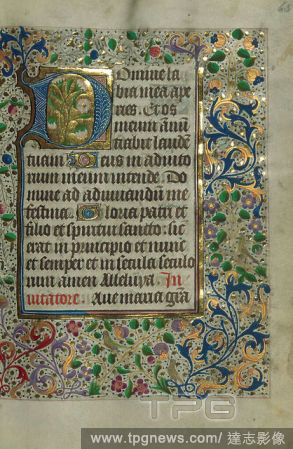 Domine la
bia mea ape
ries. Et os
meum annū
tiabit laudē
tuam Deus in adiuto
rium meum intende. Do
mine ad adiuuandum me
festina. Gloria patri et
filio et spiritui sancto. sic
erat in principio et nunc
et semper et in secula seculo
rum amen Alleluya. In
uitatore. Aue maria gra
TPG
www.tpgnews.com/ 達志影像